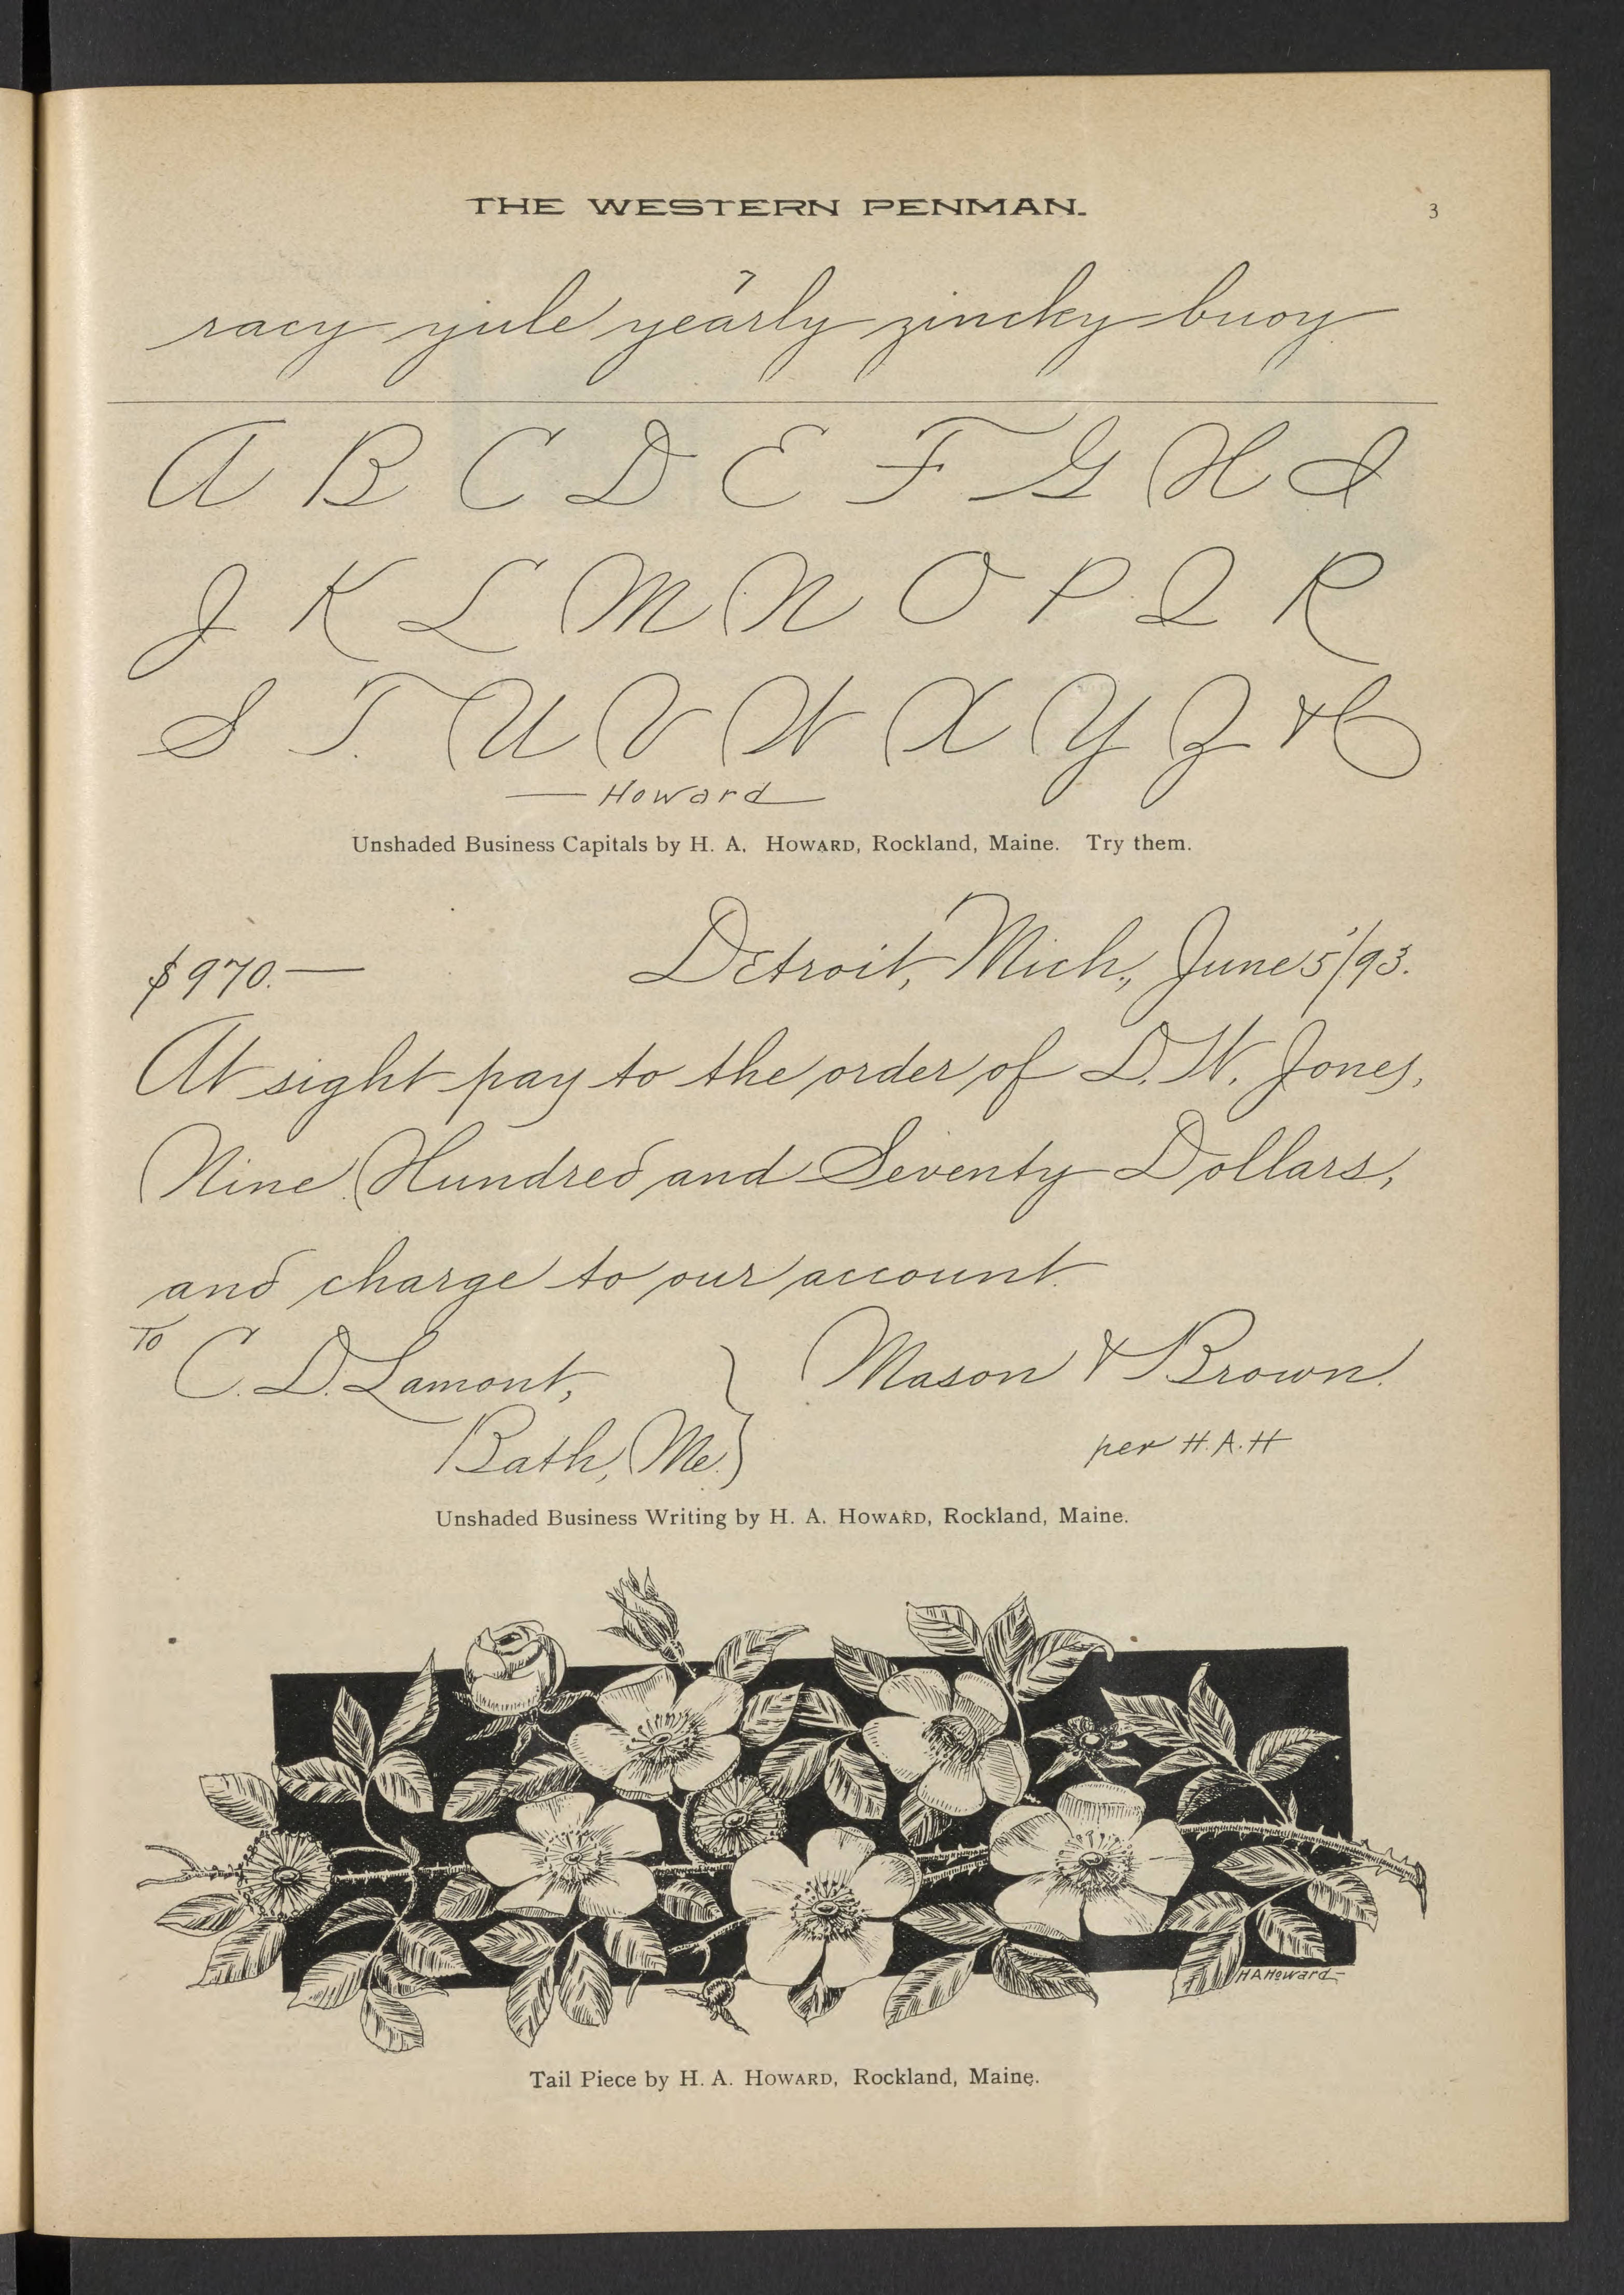 THE WESTERN PENMAN. 3
racy yule yearly zincky buoy
A B C D E F G H I
J K L M N O P Q R
S T. U V W X Y Z &
Howard
Unshaded Business Capitals by H. A. HOWARD, Rockland, Maine. Try them.
$970.— Detroit, Mich., June 5/93.
At sight pay to the order of D. W. Jones,
Nine Hundred and Seventy Dollars,
and charge to our account.
To C. D. Lamont, Mason & Brown.
Bath, Me. per H. A. H
Unshaded Business Writing by H. A. HOWARD, Rockland, Maine.
H A Howard
Tail Piece by H. A. HOWARD, Rockland, Maine.